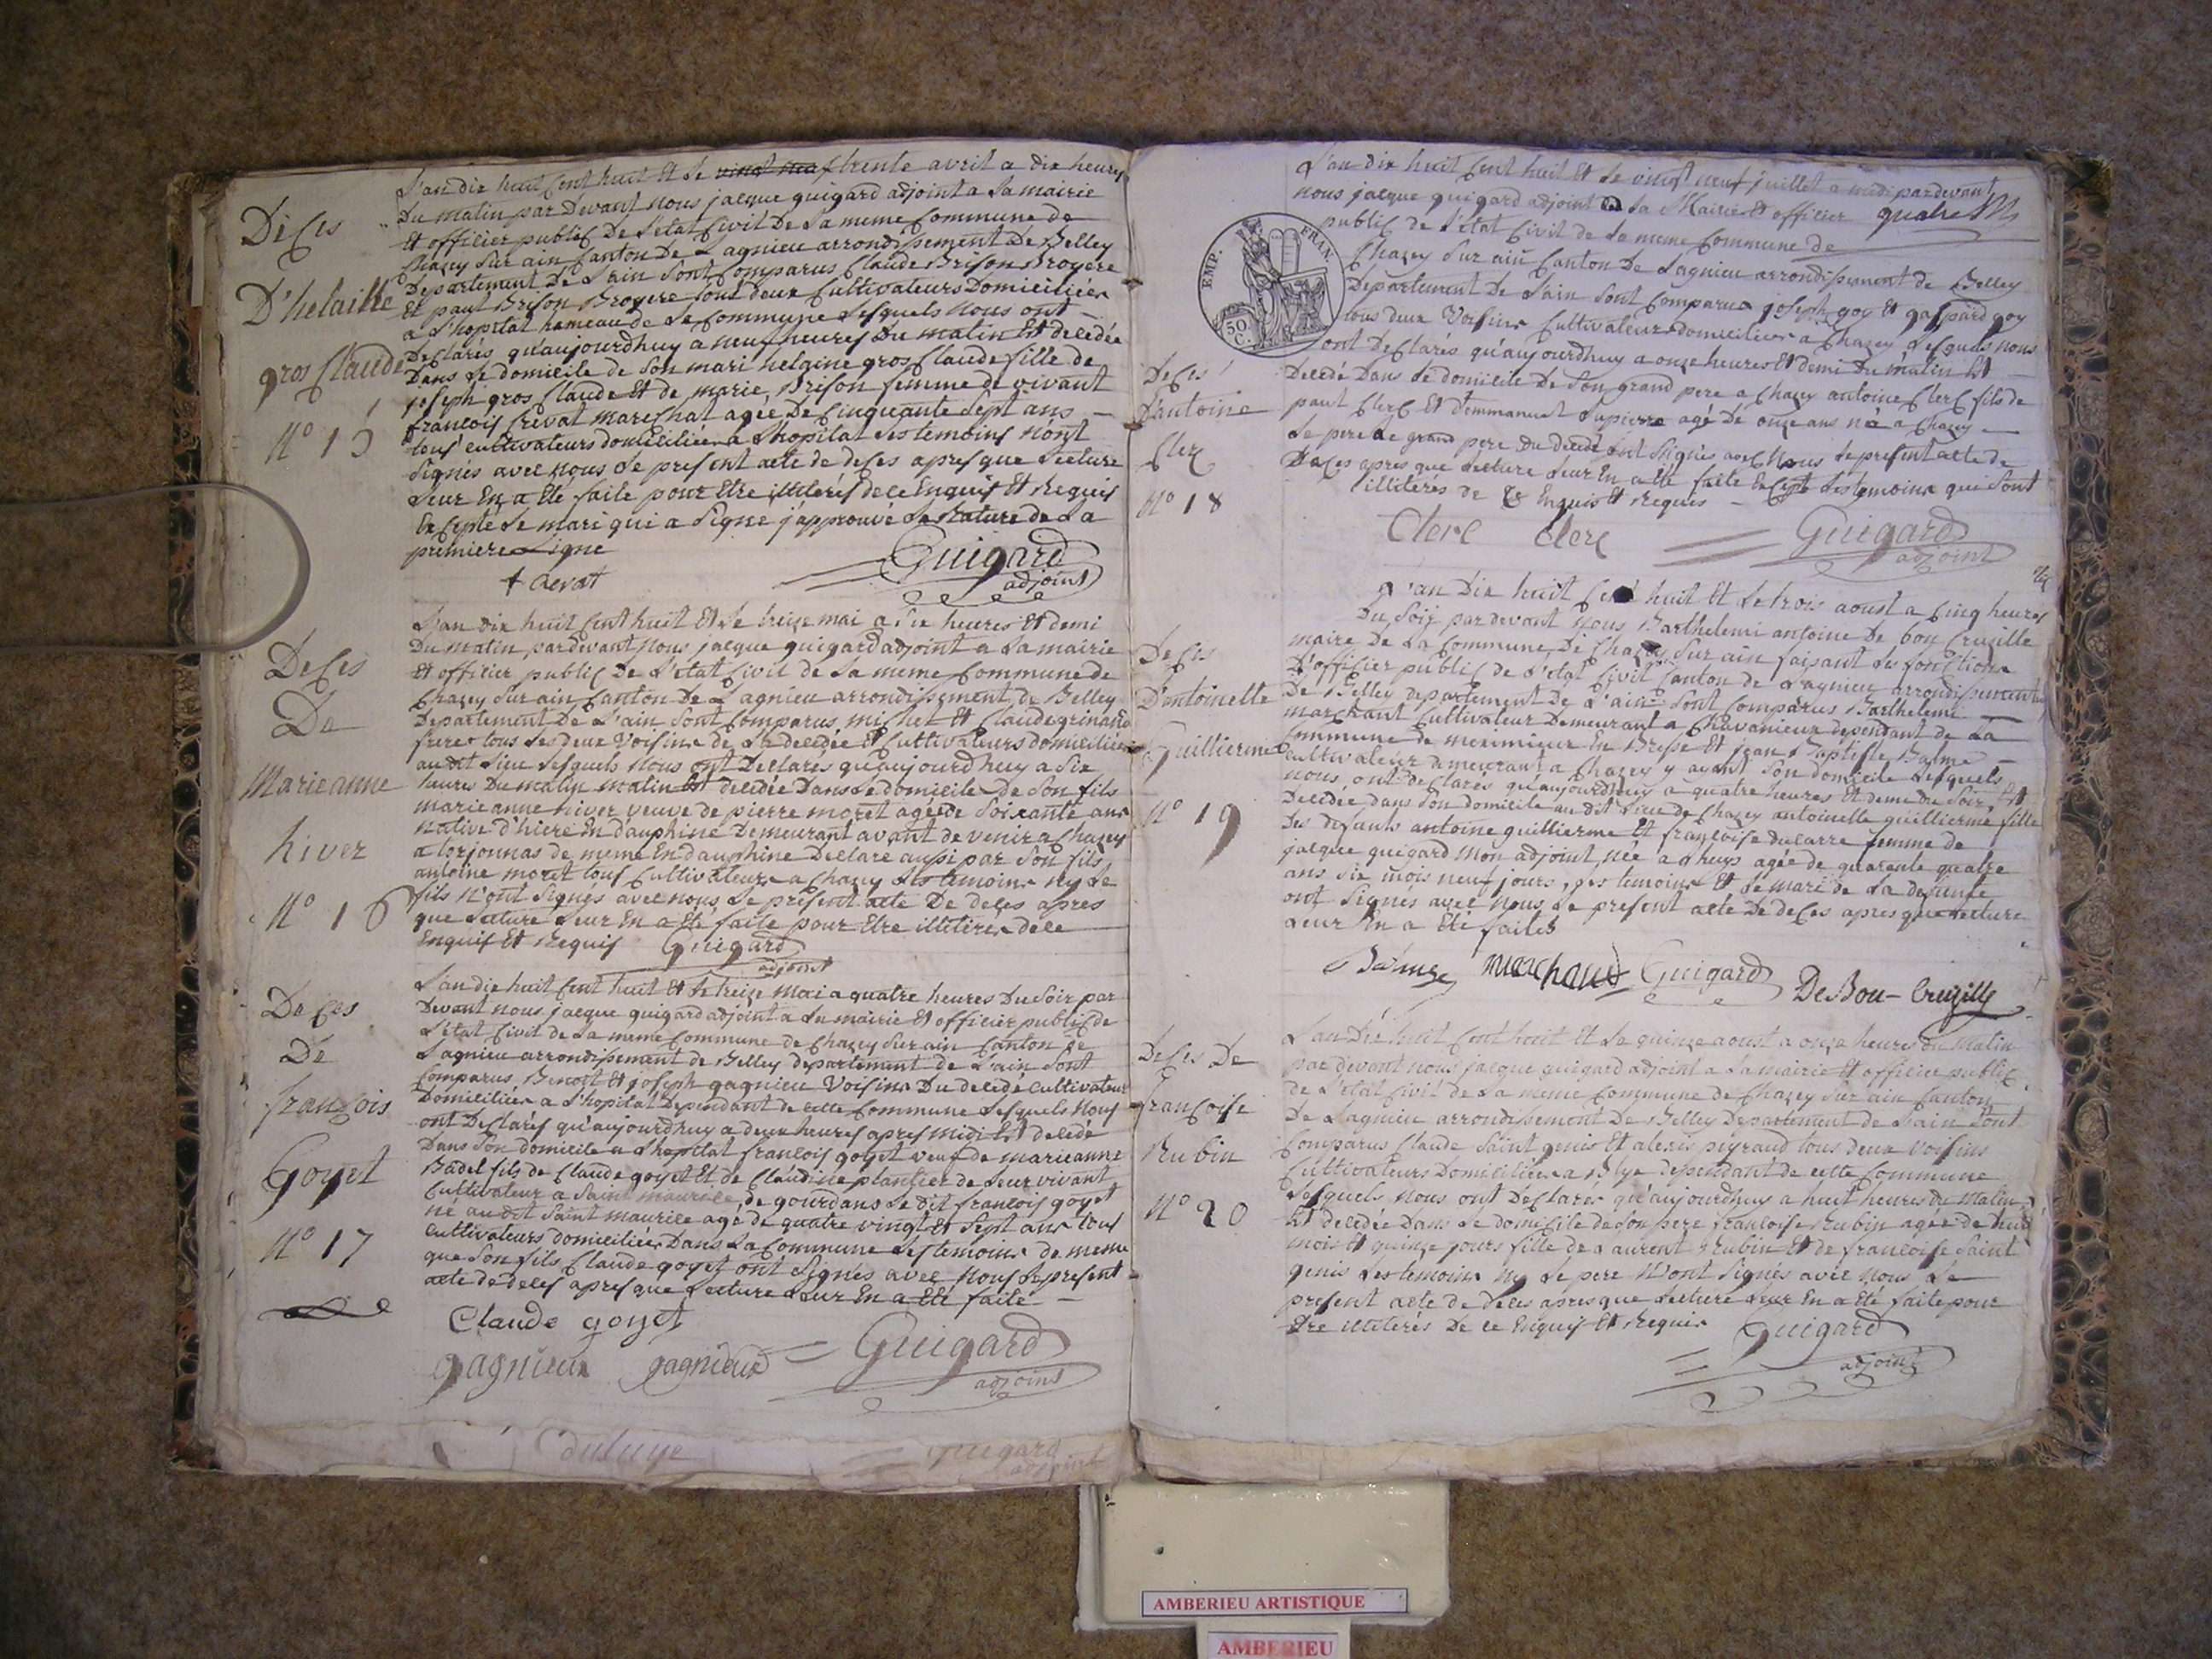 L'an dix huit Cent huit Et Le vingt neuf trente avril a dix heures
Du matin par Devant nous jacque guigard adjoint a La mairie
Et officier public De L'etat Civil De La meme Commune de
Chazey Sur ain Canton De Lagnieu arrondissement De Belley
Departement De L'ain Sont Comparus Claude Brison Broyere
Et paul Brison Broyere tout deux Cultivateurs Domiciliés
a L'hopital hameau de La Commune Lesquels Nous ont
Declarés qu'aujourdhuy a neuf heures Du matin Et decedée
Dans Le domicile de Son mari helaine gros Claude fille de
joseph gros Claude Et de marie Brison femme de vivant
francois Crevat marechal agée De Cinquante Sept ans
tous cultivateurs domiciliés a L'hopital Les temoins n'ont
Signés avec nous Le present acte de deces apres que Lecture
Leur En a Eté faite pour Etre illiterés de ce Enquis Et Requis
Excepté Le mari qui a Signé j'approuvé La Rature de La
premiere Ligne
Guigard
adjoint
Deces
D'helaille
gros Claude
N° 15
L'an dix huit Cent huit Et Le treize mai a Six heures Et demi
Du matin, pardevant Nous jacque guigard adjoint a La mairie
Et officier public De L'etat Civil de La meme Commune de
Chazey Sur ain Canton De Lagnieu arrondissement de Belley
Departement De L'ain Sont Comparus michel Et Claude grinand
freres tous Les deux Voisins de La decedée Et Cultivateurs domiciliés
audit Lieu Lesquels Nous ont Declarés qu'aujourdhuy a Six
heures Du matin matin Est decedée Dans Le domicile de Son fils
marie anne hiver veuve de pierre moret agée de Soixante ans
Native d'hiere En dauphiné Demeurant avant de venir a Chazey
a torjonnas de meme En dauphine Declare aussi par Son fils
antoine moret tous Cultivateurs a Chazey Les temoins ny Le
fils N'ont Signés avec nous Le present acte De deces apres
que Lecture Leur En a Eté faite pour Etre illiterés de ce
Enquis Et Requis Guigard
adjoint
Deces
De
Marie anne
hiver
N° 16
L'an dix huit Cent huit Et Le treize Mai a quatre heures Du Soir par
Devant nous jacque guigard adjoint a La mairie Et officier public de
L'etat Civil de La meme Commune de Chazey Sur ain Canton de
Lagnieu arrondissement de Belley departement de L'ain Sont
Comparus Benoit Et joseph gagnieu Voisins Du decedé Cultivateurs
Domiciliés a L'hopital Dependant de cette Commune Lesquels Nous
ont Declarés qu'aujourdhuy a deux heures apres midi Est decedé
Dans Son domicile a L'hopital francois goyet veuf de marieanne
Badel fils de Claude goyet Et de Claudine plantier de Leur vivant
Cultivateur a Saint maurice de gourdans Le dit francois goyet
né audit Saint maurice agé de quatre vingt Et Sept ans tous
Cultivateurs domiciliés Dans La Commune Les temoins de meme
que Son fils Claude goyet ont Signés avec Nous Le present
acte de deces apres que Lecture Leur En a Eté faite
Claude goyet
gagnieux gagnieux Guigard
adjoint
Deces
De
françois
Goyet
N° 17
Guigard
adjoint
L'an dix huit Cent huit Et Le vingt neuf juillet a midi pardevant
nous jacque guigard adjoint a La Mairie Et officier
public de L'etat Civil de La meme Commune de
Chazey Sur ain Canton De Lagnieu arrondissement de Belley
Departement De L'ain Sont Comparus joseph goy Et gaspard goy
tous deux Voisins Cultivateurs domiciliés a Chazey Lesquels nous
ont Declarés qu'aujourdhuy a onze heures Et demi Du matin Est
Decedé Dans Le domicile De Son grand pere a Chazey antoine Clerc fils de
paul Clerc Et d'emmanuel Lapierre agé De onze ans né a Chazey
Le pere Le grand pere Du decedé ont Signés avec Nous Le present acte de
Deces apres que Lecture Leur En a Eté faite Except Les temoins qui Sont
illiterés de Ce Enquis Et Requis
Clerc Clerc Guigard
adjoint
quatre
EMP. FRAN.
50. C.
Deces
D'antoine
Clerc
N° 18
L'an Dix huit Cent huit Et Le trois aoust a Cinq heures
Du Soir par devant Nous Barthelemi antoine De bon Cruzille
maire De La Commune De Chazey Sur ain faisant Les fonctions
D'officier public de L'etat Civil Canton de Lagnieu arrondissement
De Belley departement De L'ain Sont Comparus Barthelemi
marchant Cultivateur Demeurant a Chavanieux dependant de La
Commune de meximieux En Bresse Et jean Baptiste Balme
Cultivateur demeurant a Chazey y ayant Son domicile Lesquels
nous ont declarés qu'aujourdhuy a quatre heures Et demi Du Soir Est
Decedée dans Son domicile au dit Lieu de Chazey antoinette guillierme fille
Des defunts antoine guillierme Et françoise ducarre femme de
jacque guigard Mon adjoint, née a heys agée de quarente quatre
ans Six mois neuf jours, Les temoins Et Le mari de La defunte
ont Signés avec Nous Le present acte De deces apres que Lecture
Leur En a Eté faites
Balme marchand Guigard DeBon-Cruzille
Deces
D'antoinette
Guillierme
N° 19
L'an Dix huit Cent huit Et Le quinze aoust a onze heures du Matin
par devant nous jacque guigard adjoint a La mairie Et officier public
de L'etat Civil de La meme Commune de Chazey Sur ain Canton
De Lagnieu arrondissement De Belley Departement de L'ain Sont
Comparus Claude Saint genis Et alexis peyraud tous deux Voisins
Cultivateurs Domiciliés a Blye dependant de cette Commune
Lesquels Nous ont Declarés qu'aujourdhuy a huit heures du Matin
Est decedée Dans Le domicile de Son pere francoise Rubin agée de
mois Et quinze jours fille de Laurent Rubin Et de francoise Saint
genis Les temoins ny Le pere N'ont Signés avec Nous Le
present acte de deces apres que Lecture Leur En a Eté faite pour
Etre illiterés De ce Enquis Et Requis Guigard
adjoint
Deces De
Françoise
Rubin
N° 20
AMBERIEU ARTISTIQUE
AMBERIEU